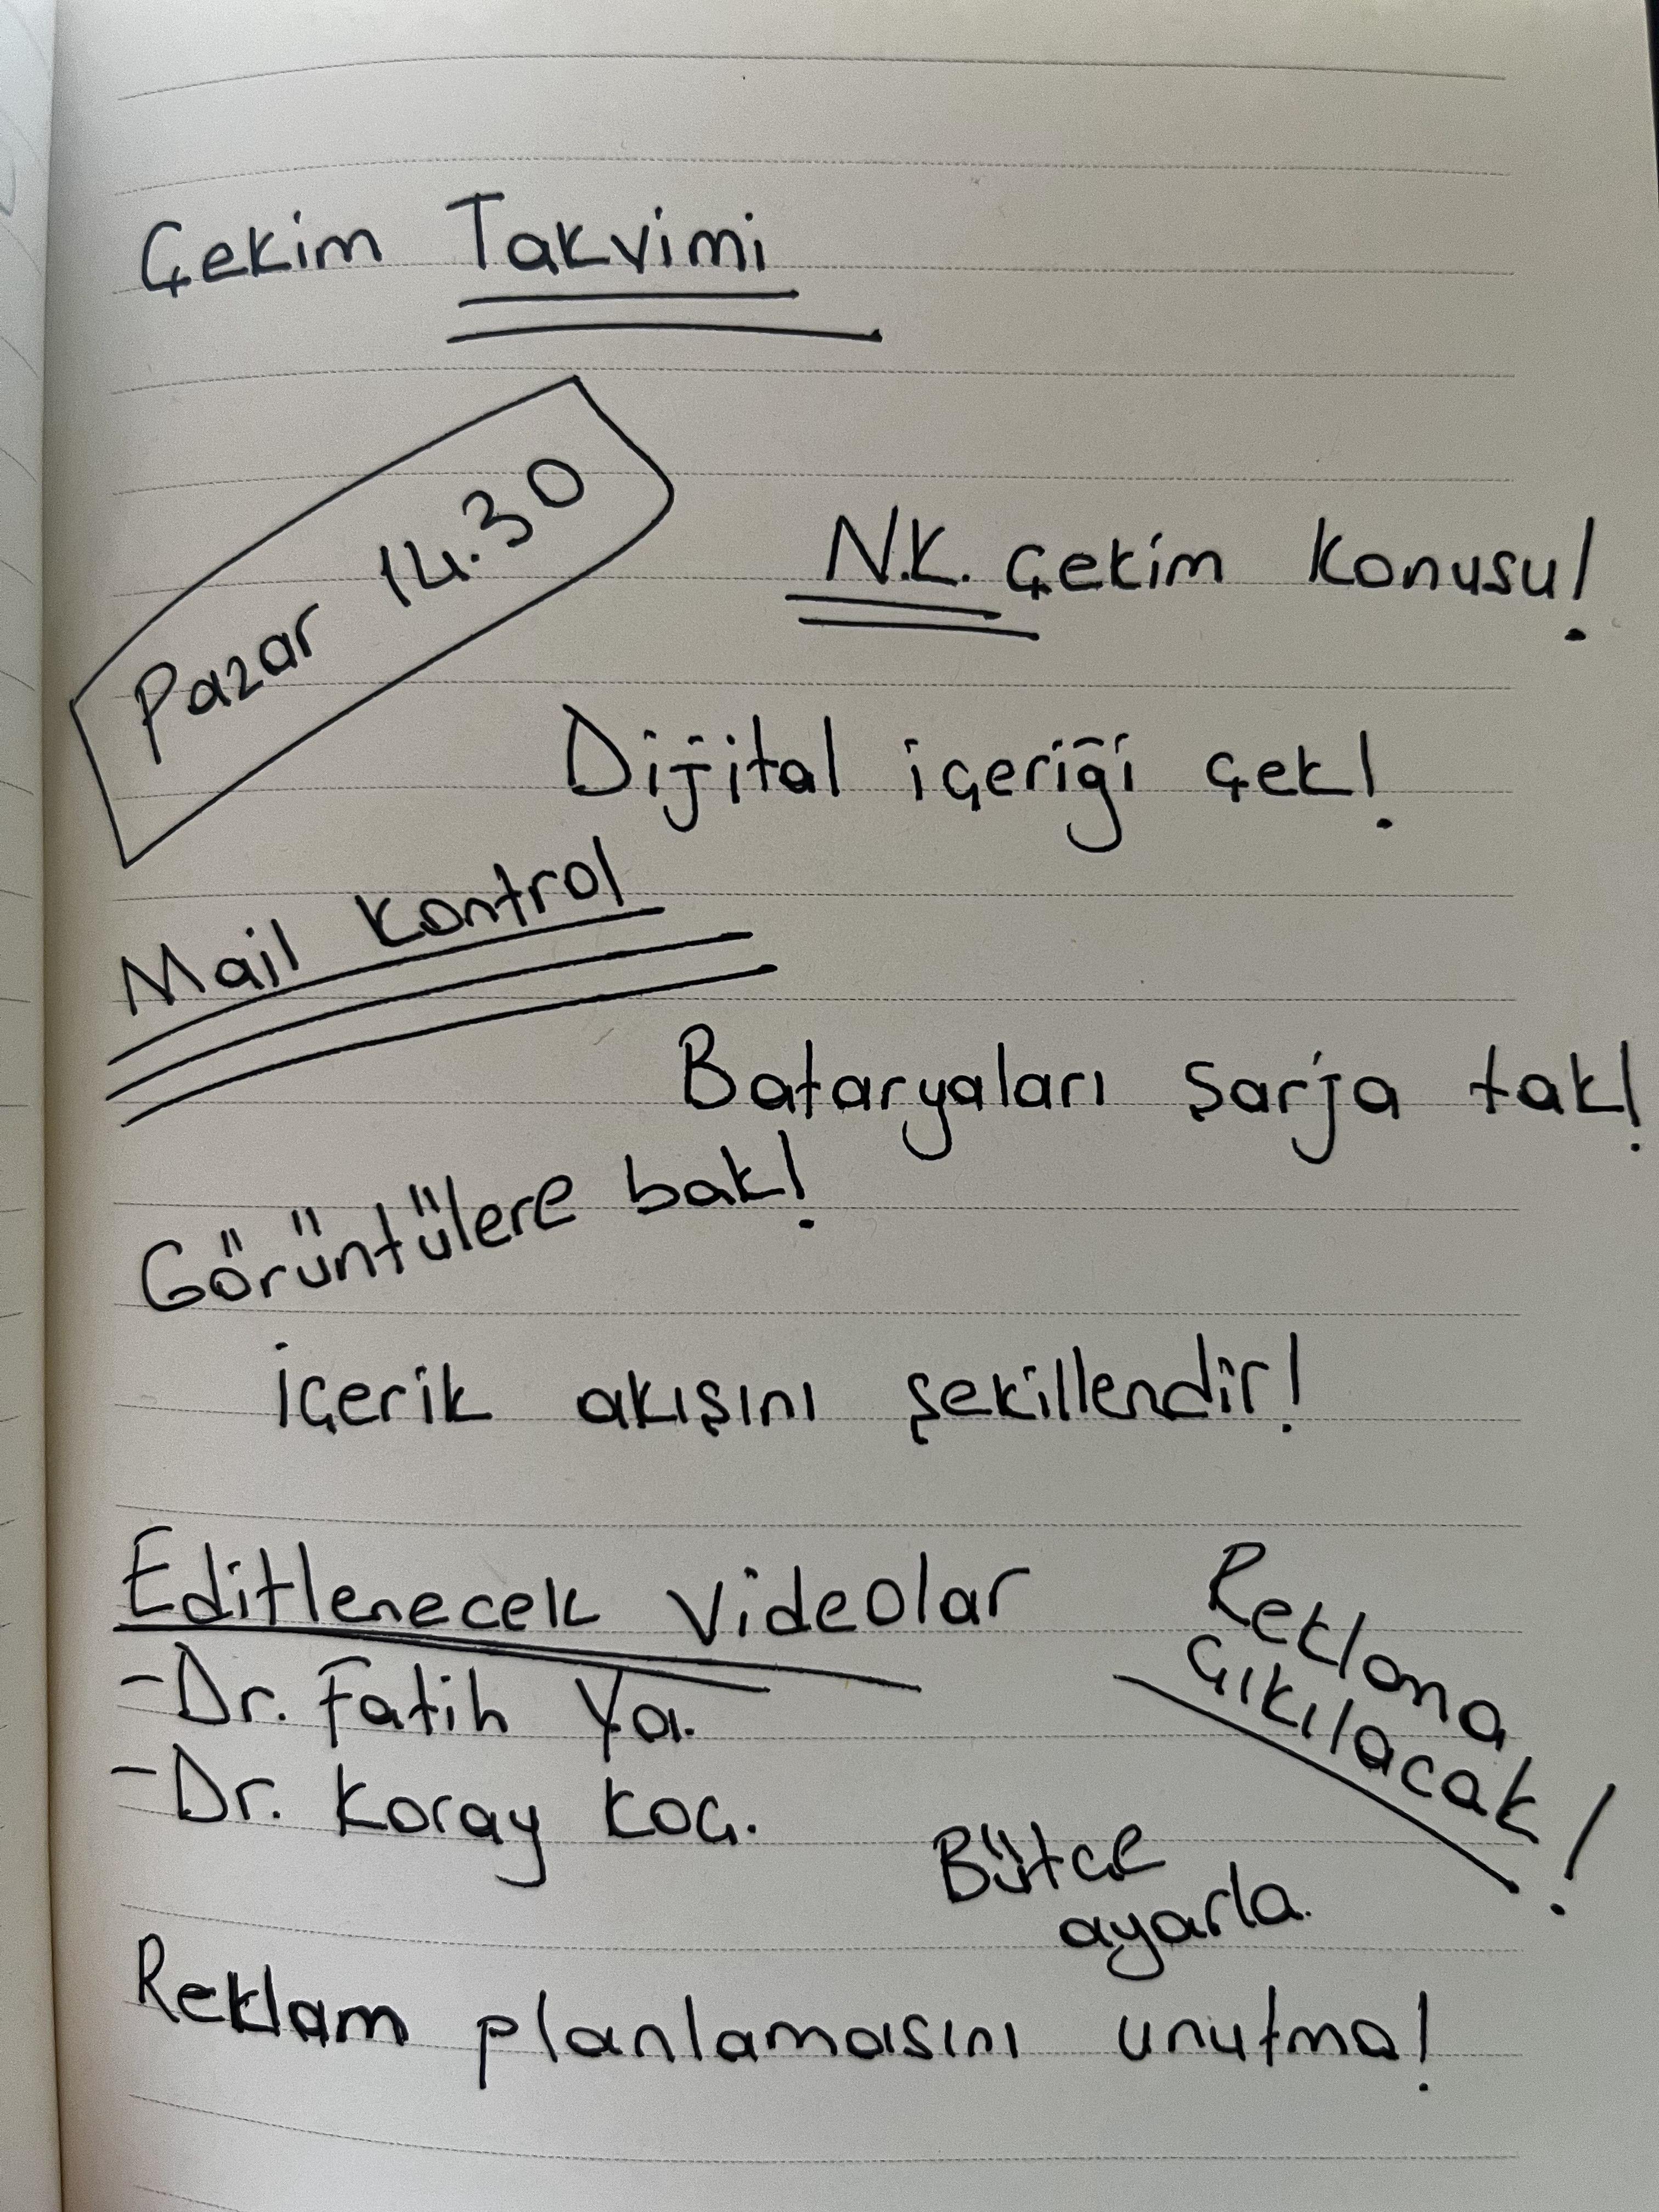 Çekim Takvimi
Pazar 14.30
N.K. Çekim Konusu!
Dijital içeriği çek!
Mail Kontrol
Bataryaları şarja tak!
Görüntülere bak!
İçerik akışını şekillendir!
Editlenecek Videolar
Reklama
çıkılacak!
-Dr. Fatih Ya.
-Dr. Koray Koç.
Bütçe
ayarla.
Reklam planlamasını unutma!